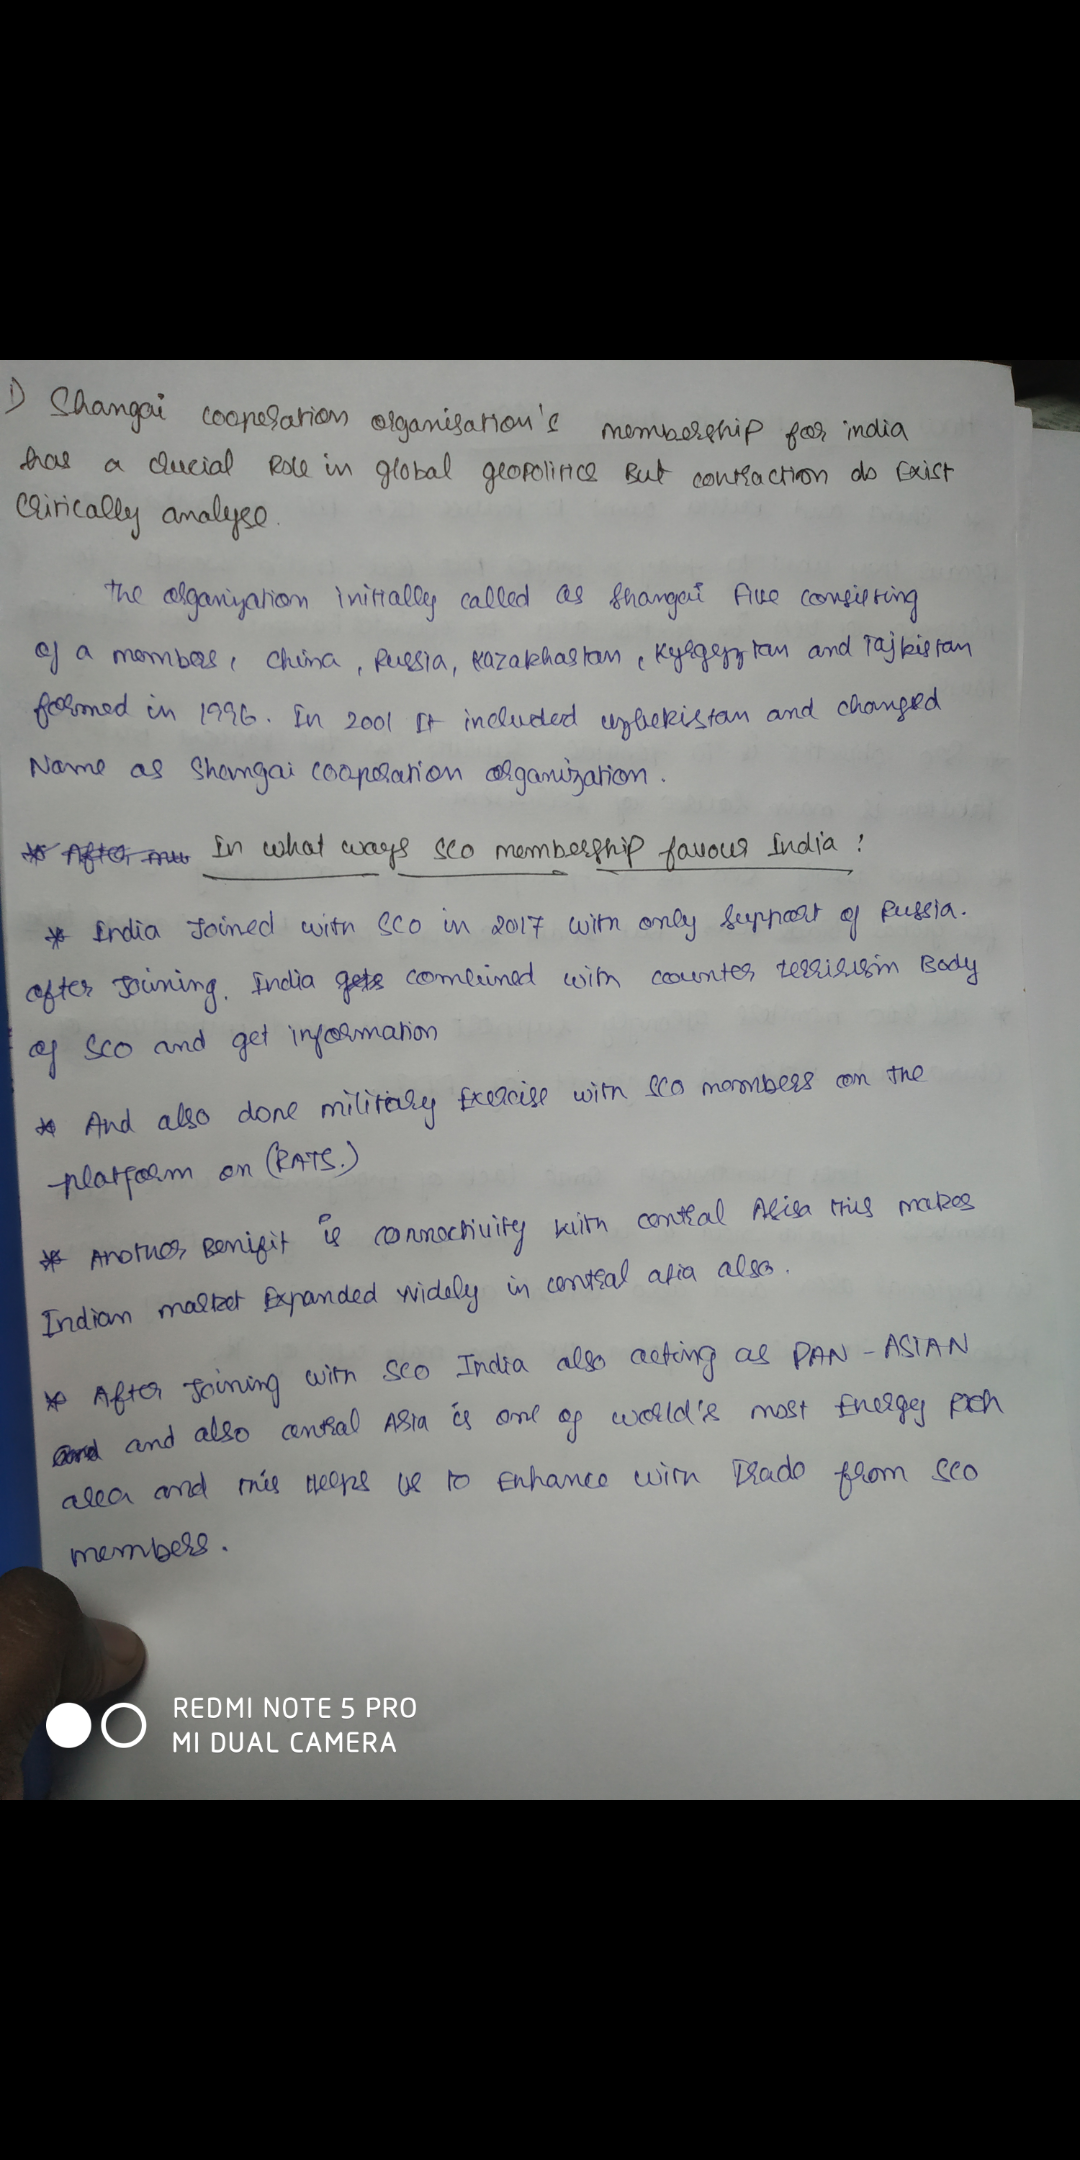 1) Shangai cooperation organisation's membership for india
has a crucial Role in global geopolitics But contraction do Exist
Critically analyse.
The organization initially called as Shangai five consisting
of a members, China, Russia, Kazakhastan, Kyrgyztan and Tajkistan
formed in 1996. In 2001 It included uzbekistan and changed
Name as Shangai cooperation organization.
* After In what ways SCO membership favour India :
* India Joined with SCO in 2017 with only support of Russia.
after Joining. India gets combined with counter terririsim Body
of SCO and get information
* And also done military Exercise with SCO members on the
platform on (RATS.)
* Another Benifit is connectivity with central Asia this makes
Indian market Expanded widely in central asia also.
* After Joining with SCO India also acting as PAN - ASIAN
and and also central Asia is one of world's most Energy rich
area and this Helps us to Enhance with Trade from SCO
members.
REDMI NOTE 5 PRO
MI DUAL CAMERA